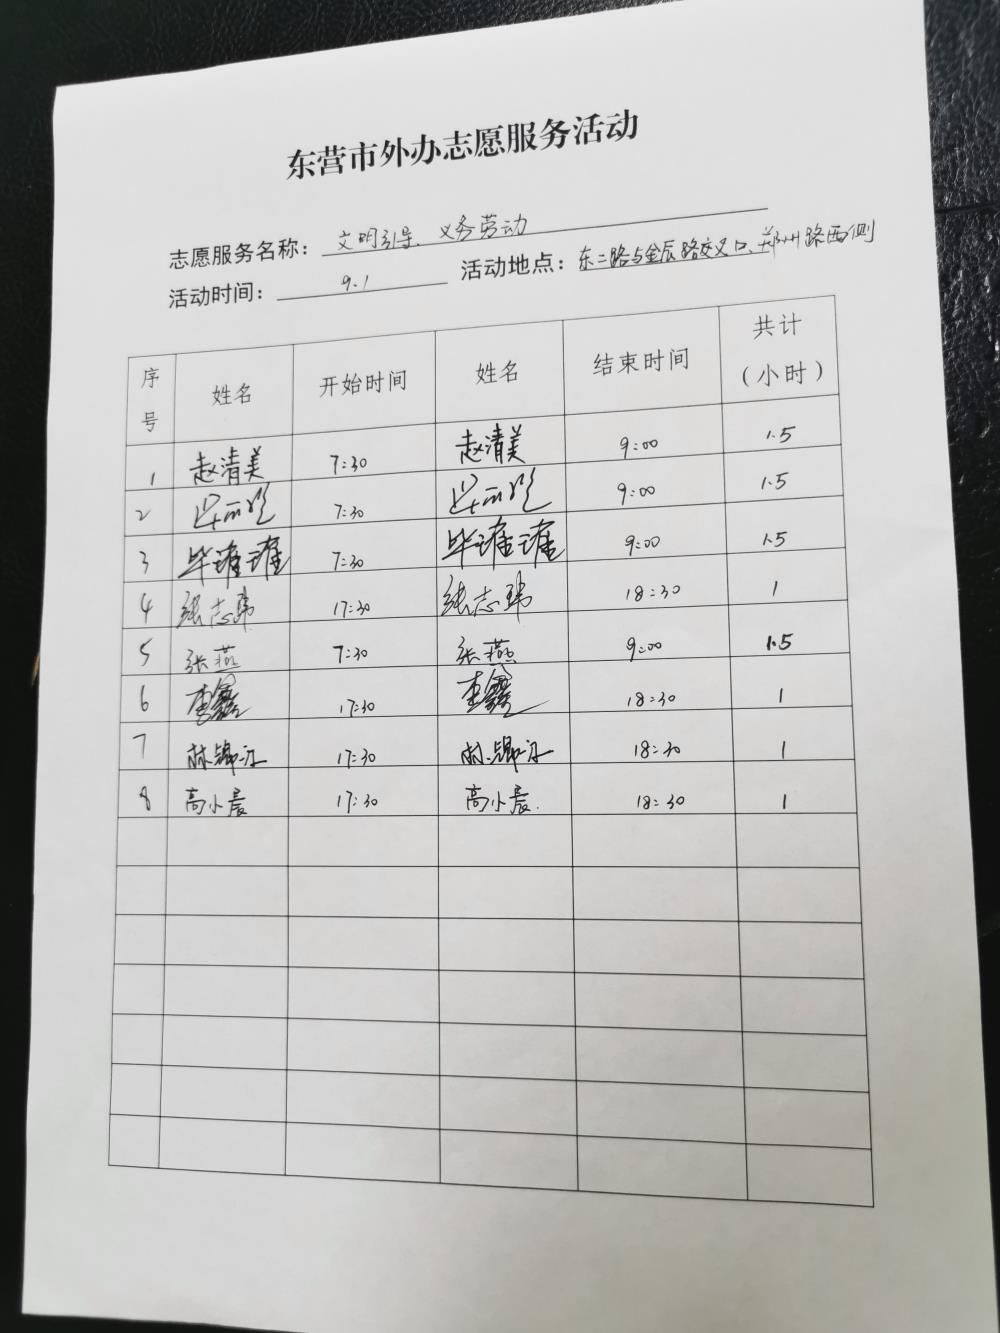 东营市外办志愿服务活动
志愿服务名称： 文明引导、义务劳动
活动时间： 9.1 活动地点：东二路与金辰路交叉口、郑州路西侧
序号 姓名 开始时间 姓名 结束时间 共计（小时）
1 赵清美 7:30 赵清美 9:00 1.5
2 7:30 9:00 1.5
3 毕璀璀 7:30 毕璀璀 9:00 1.5
4 张志玮 17:30 张志玮 18:30 1
5 张燕 7:30 张燕 9:00 1.5
6 李鑫 17:30 李鑫 18:30 1
7 林锦江 17:30 林锦江 18:30 1
8 高小晨 17:30 高小晨 18:30 1